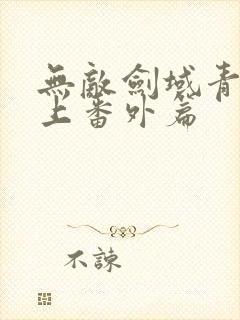 無敵劍域青
上番外篇
不諫